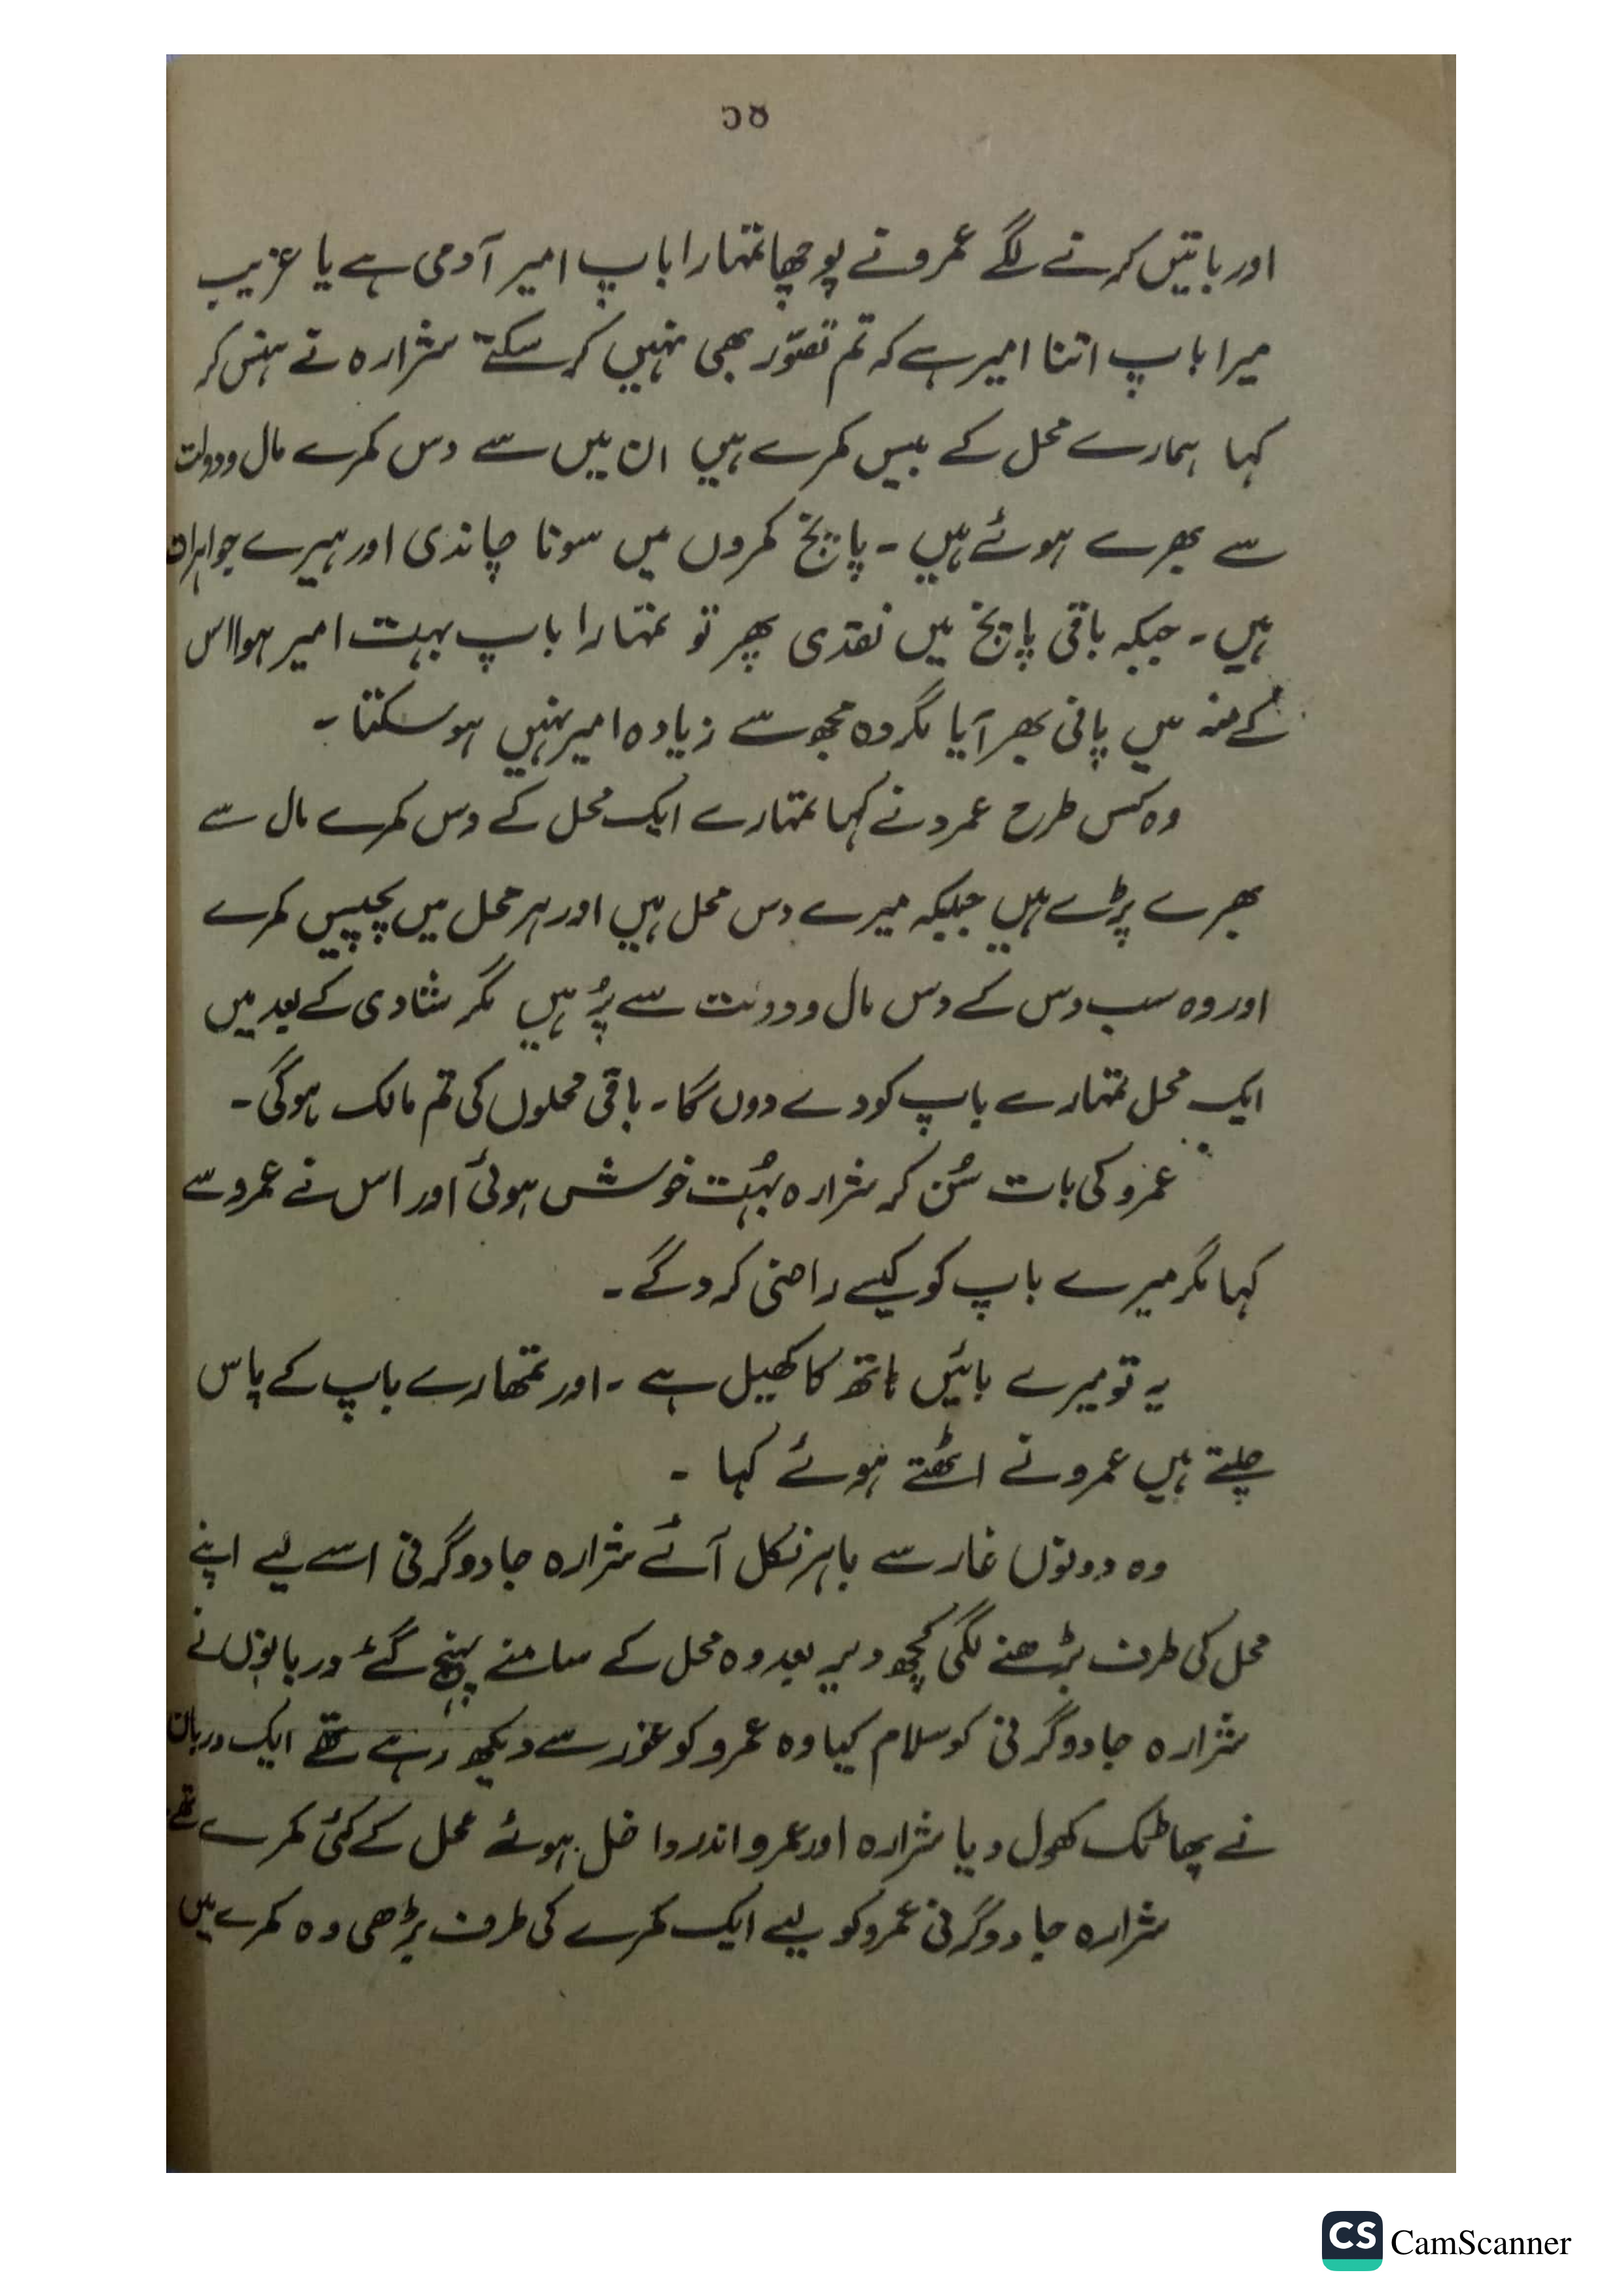 اور باتیں کرنے لگے عمرو نے پوچھا تمہارا باپ امیر آدمی ہے یا غریب
میرا باپ اتنا امیر ہے کہ تم تصوّر بھی نہیں کر سکتے" شرارہ نے ہنس کر
کہا ہمارے محل کے بیس کمرے ہیں ان میں سے دس کمرے مال و دولت
سے بھرے ہوئے ہیں ۔ پانچ کمروں میں سونا چاندی اور ہیرے جواہرات
ہیں ۔ جبکہ باقی پانچ میں نقدی پھر تو تمہارا باپ بہت امیر ہوا اس
کے منہ میں پانی بھر آیا مگر وہ مجھ سے زیادہ امیر نہیں ہو سکتا ۔
وہ کس طرح عمرو نے کہا تمہارے ایک محل کے دس کمرے مال سے
بھرے پڑے ہیں جبکہ میرے دس محل ہیں اور ہر محل میں پچیس کمرے
اور وہ سب دس کے دس مال و دولت سے پُر ہیں مگر شادی کے بعد میں
ایک محل تمہارے باپ کو دے دوں گا ۔ باقی محلوں کی تم مالک ہوگی ۔
عمرو کی بات سُن کر شرارہ بہُت خوش ہوئی اور اس نے عمرو سے
کہا مگر میرے باپ کو کیسے راضی کرو گے ۔
یہ تو میرے بائیں ہاتھ کا کھیل ہے ۔ اور تمھارے باپ کے پاس
چلتے ہیں عمرو نے اٹھتے ہوئے کہا ۔
وہ دونوں غار سے باہر نکل آئے شرارہ جادوگرنی اسے لیے اپنے
محل کی طرف بڑھنے لگی کچھ دیر بعد وہ محل کے سامنے پہنچ گئے دربانوں نے
شرارہ جادوگرنی کو سلام کیا وہ عمرو کو غور سے دیکھ رہے تھے ایک دربان
نے پھاٹک کھول دیا شرارہ اور عمرو اندر داخل ہوئے محل کے کئی کمرے تھے
شرارہ جادوگرنی عمرو کو لیے ایک کمرے کی طرف بڑھی وہ کمرے میں
CS CamScanner